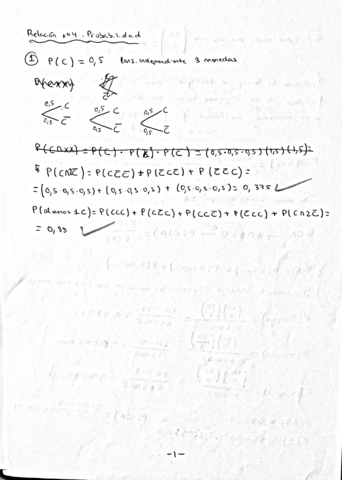 Relación nº4. Probabilidad
① P(C) = 0,5 lanz. independiente 3 monedas
0,5 C 0,5 C 0,5 C
0,5 C̅ 0,5 C̅ 0,5 C̅
P(C∩2C̅) = P(CC̅C̅) + P(C̅CC̅) + P(C̅C̅C) =
= (0,5·0,5·0,5) + (0,5·0,5·0,5) + (0,5·0,5·0,5) = 0,375 ✓
P(al menos 1C) = P(CCC) + P(CC̅C) + P(CCC̅) + P(C̅CC) + P(C∩2C̅) =
= 0,88 ✓
-1-